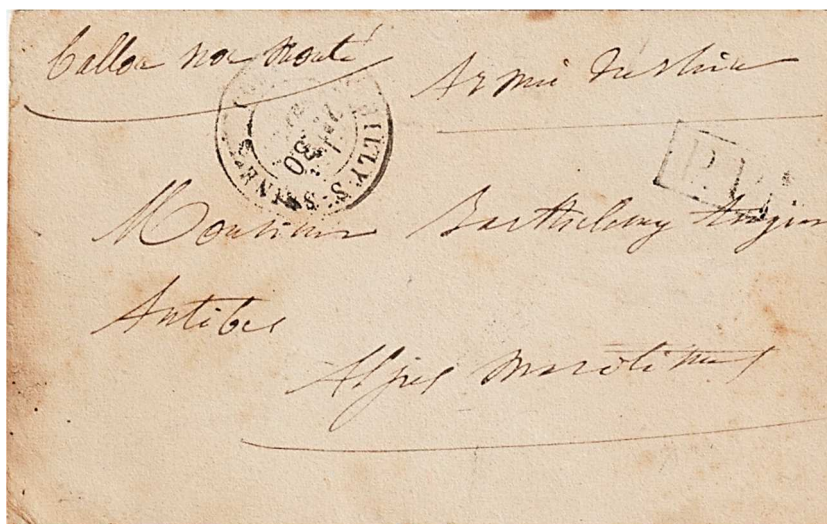 Ballon non Monté
Armée
NEUILLY-S-SEINE
30
P.P.
Monsieur Barthelemy
Antibes
Alpes Maritimes